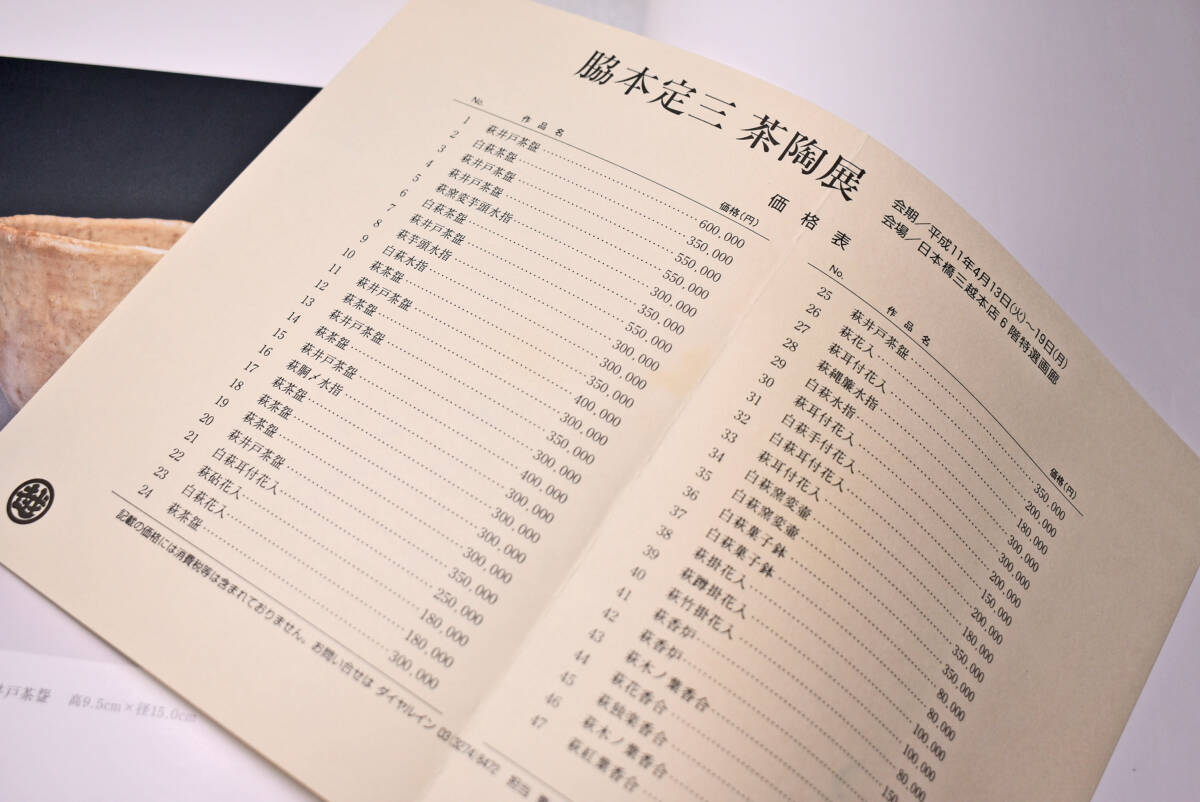 脇本定三 茶陶展
価格表
会期／平成11年4月13日(火)～19日(月)
会場／日本橋三越本店6階特選画廊
No. 作品名 価格(円)
1 萩井戸茶盌 600,000
2 白萩茶盌 350,000
3 萩井戸茶盌 550,000
4 萩井戸茶盌 550,000
5 萩窯変芋頭水指 300,000
6 白萩茶盌 350,000
7 萩井戸茶盌 550,000
8 萩芋頭水指 300,000
9 白萩水指 300,000
10 萩茶盌 350,000
11 萩井戸茶盌 400,000
12 萩茶盌 300,000
13 萩井戸茶盌 350,000
14 萩茶盌 300,000
15 萩井戸茶盌 400,000
16 萩胴〆水指 300,000
17 萩茶盌 300,000
18 萩茶盌 300,000
19 萩茶盌 300,000
20 萩井戸茶盌 350,000
21 白萩耳付花入 250,000
22 萩砧花入 180,000
23 白萩花入 180,000
24 萩茶盌 300,000
記載の価格には消費税等は含まれておりません。お問い合せは ダイヤルイン 03(3274)8472 担当
No. 作品名 価格(円)
25 萩井戸茶盌 350,000
26 萩花入 200,000
27 萩耳付花入 180,000
28 萩縄簾水指 300,000
29 白萩水指 300,000
30 萩耳付花入 200,000
31 白萩手付花入 150,000
32 白萩耳付花入 200,000
33 萩耳付花入 180,000
34 白萩窯変壷 350,000
35 白萩窯変壷 350,000
36 白萩菓子鉢 80,000
37 白萩菓子鉢 80,000
38 萩掛花入 100,000
39 萩蹲掛花入 100,000
40 萩竹掛花入 80,000
41 萩香炉 150
42 萩香炉
43 萩木ノ葉香合
44 萩花香合
45 萩独楽香合
46 萩木ノ葉香合
47 萩紅葉香合
越
井戸茶盌 高9.5cm×径15.0cm